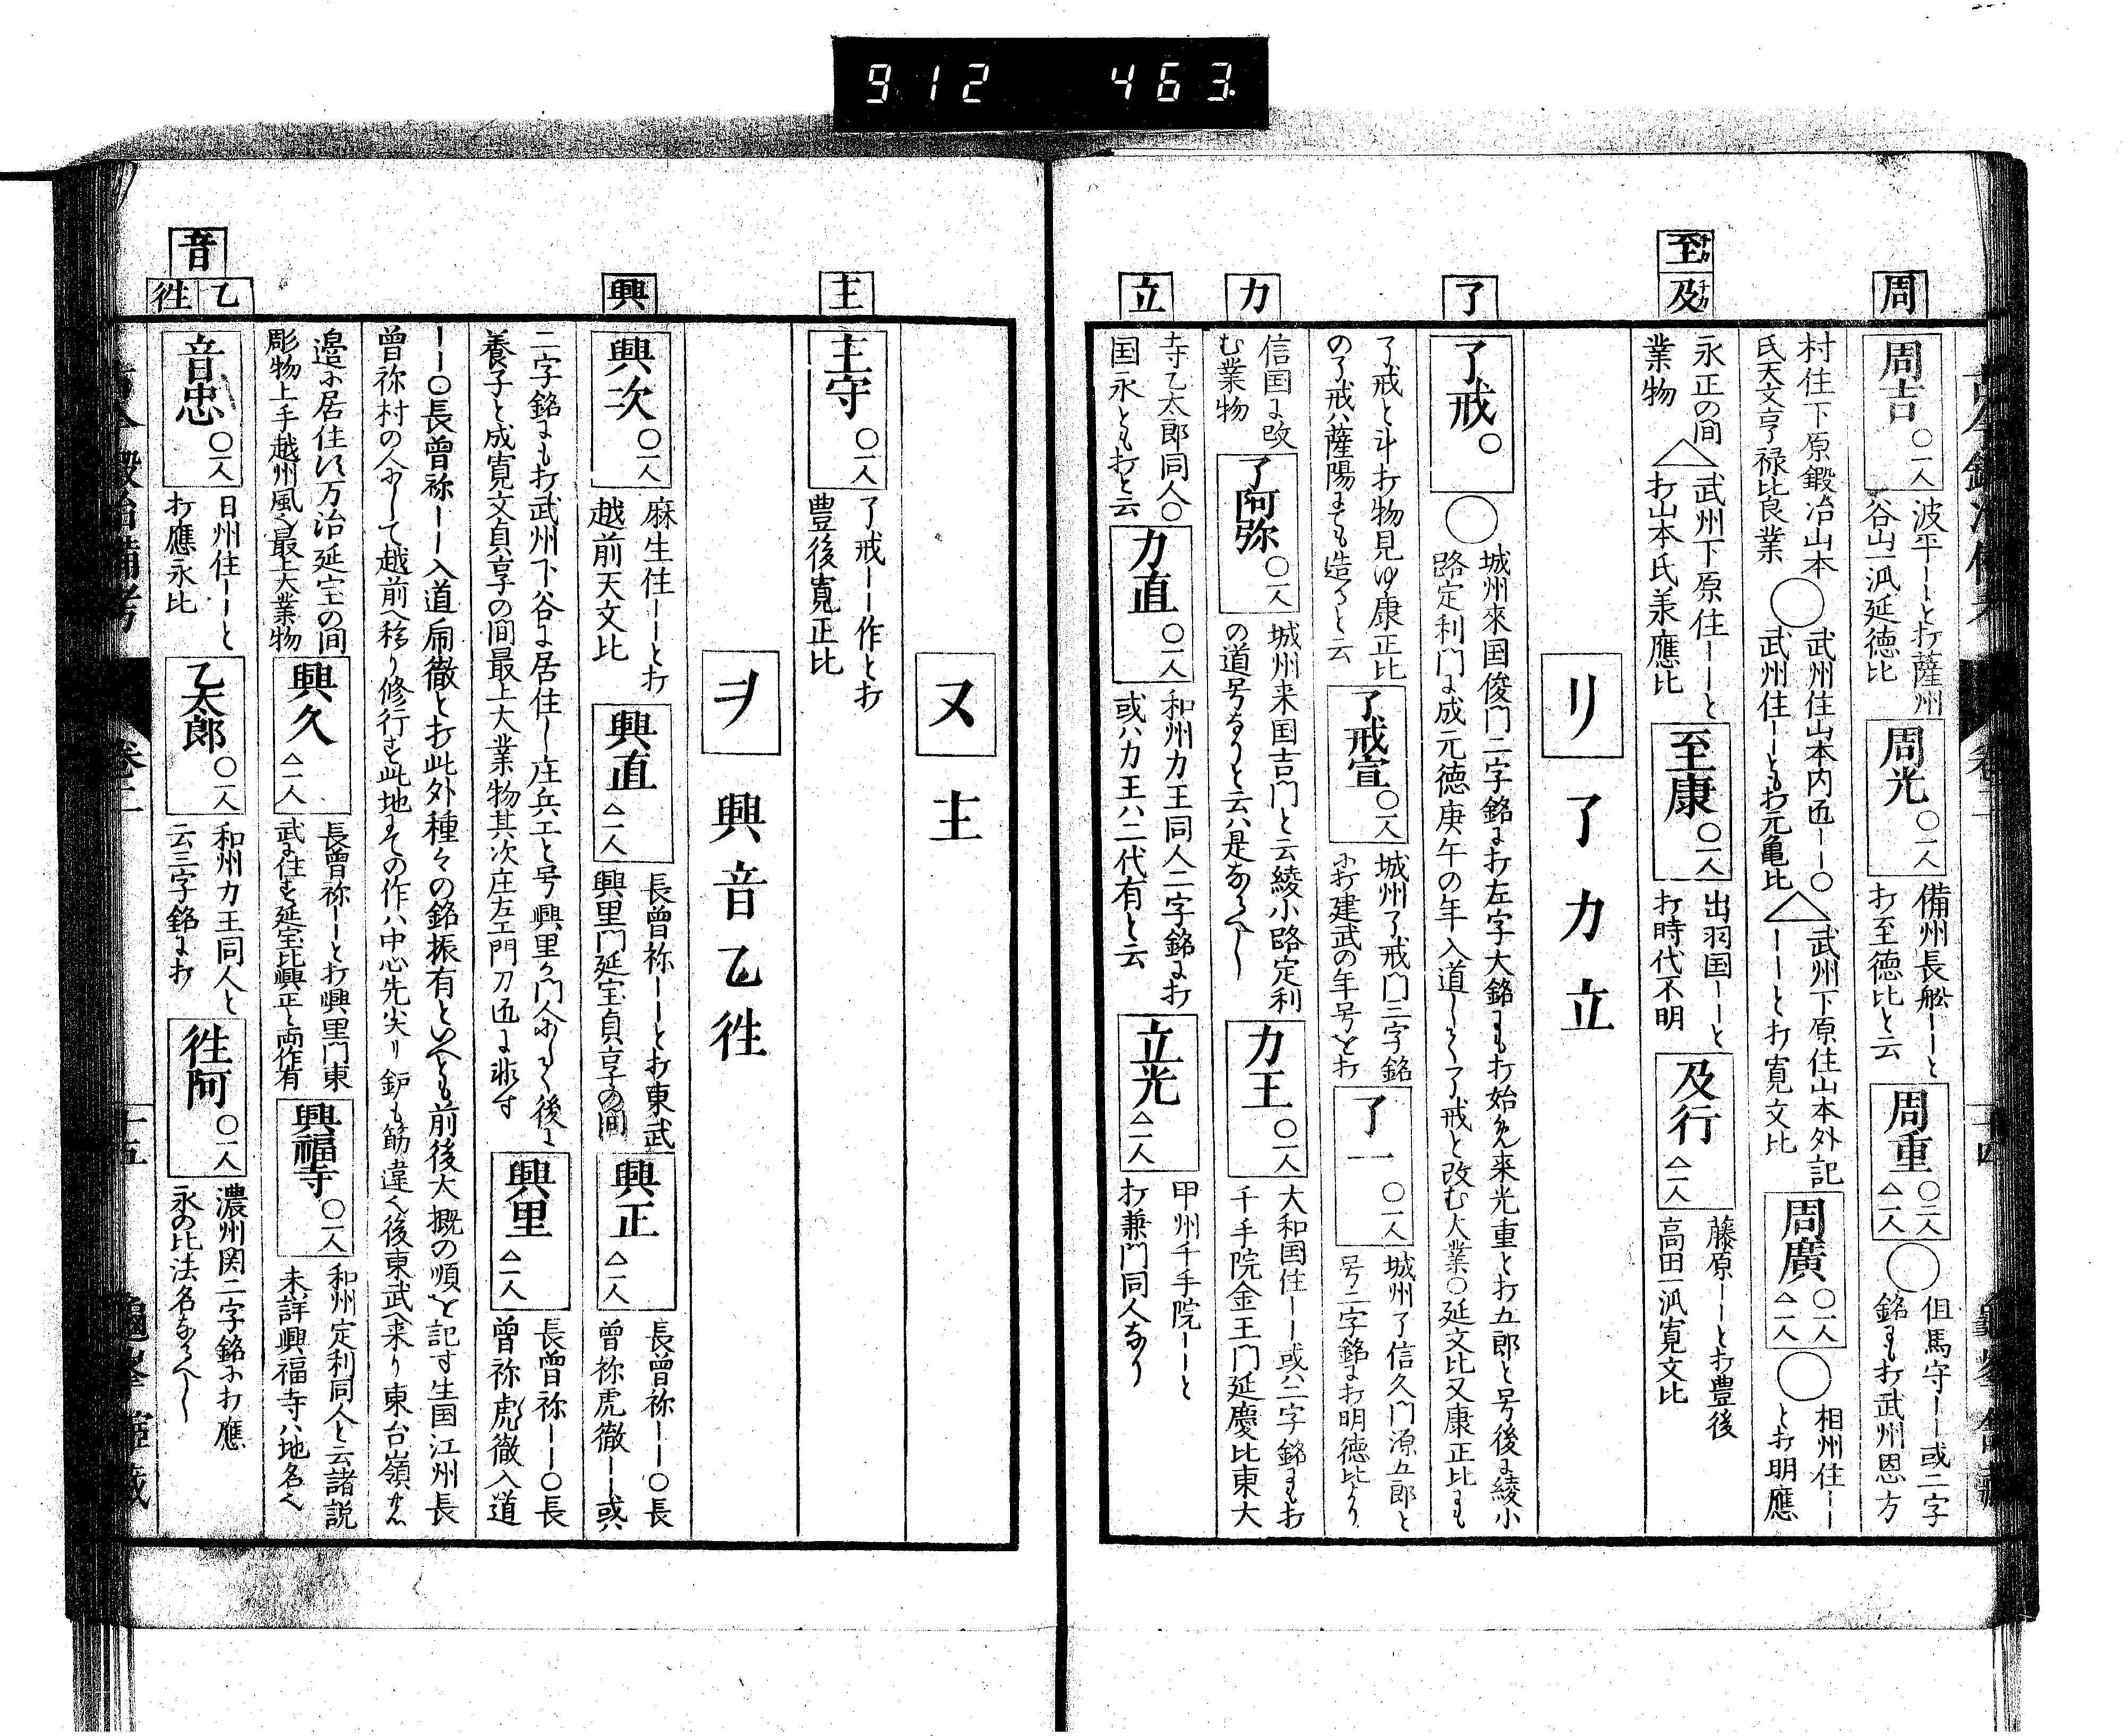 912 463
周
至 及
了
力
立
周吉 ○一人
波平ーーと打薩州
谷山一派延徳比
周光 ○一人
備州長舩ーーと
打至徳比と云
周重 ○二人 △一人
○
但馬守ーー或二字
銘にも打武州恩方
村住下原鍛冶山本
氏天文亨禄比良業
○
武州住山本内匠ーー○
武州住ーーとも打元亀比
△
武州下原住山本外記
ーーと打寛文比
周廣 ○一人 △一人
○
相州住ーー
と打明應
永正の間
業物
△
武州下原住ーーと
打山本氏承應比
至康 ○一人
出羽国ーーと
打時代不明
及行 △一人
藤原ーーと打豊後
高田一派寛文比
リ 了 力 立
了戒 ○
○
城州來国俊門二字銘に打左字大銘にも打始め来光重と打五郎と号後に綾小
路定利門に成元徳庚午の年入道して了戒と改む大業○延文比又康正比にも
了戒と斗打物見ゆ康正比
の了戒ハ薩陽にても造ると云
了戒宣 ○一人
城州了戒門三字銘
に打建武の年号を打
了一 ○一人
城州了信久門源五郎と
号二字銘に打明徳比より
信国に改
む業物
了阿弥 ○一人
城州来国吉門と云綾小路定利
の道号なりと云ハ是なるへし
力王 ○一人
大和国住ーー或ハ二字銘にも打
千手院金王門延慶比東大
寺乙太郎同人○
国永とも打と云
力直 ○一人
和州力王同人二字銘に打
或ハ力王ハ二代有と云
立光 △一人
甲州千手院ーーと
打兼門同人なり
主
興
音
乙 徃
ヌ 主
主守 ○一人
了戒ーー作と打
豊後寛正比
ヲ 興 音 乙 徃
興次 ○一人
麻生住ーーと打
越前天文比
興直 △一人
長曽祢ーーと打東武
興里門延宝貞享の間
興正 △一人
長曽祢ーー○長
曽祢虎徹ーー或ハ
二字銘にも打武州下谷に居住し庄兵エと号興里か門人にして後に
養子と成寛文貞享の間最上大業物其次庄左エ門刀匠に非す
興里 △一人
長曽祢ーー○長
曽祢虎徹入道
ーー○長曽祢ーー入道乕徹と打此外種々の銘振有といへとも前後大概の順を記す生国江州長
曽祢村の人にして越前へ移り修行す此地にての作ハ中心先尖り鈩も筋違へ後東武へ来り東台嶺
邉に居住す万治延宝の間
彫物上手越州風也最上大業物
興久 △一人
長曽祢ーーと打興里門東
武に住す延宝比興正と両作有
興福寺 ○一人
和州定利同人と云諸説
未詳興福寺ハ地名也
音忠 ○一人
日州住ーーと
打應永比
乙太郎 ○一人
和州力王同人と
云三字銘に打
徃阿 ○一人
濃州関二字銘に打應
永の比法名なるへし